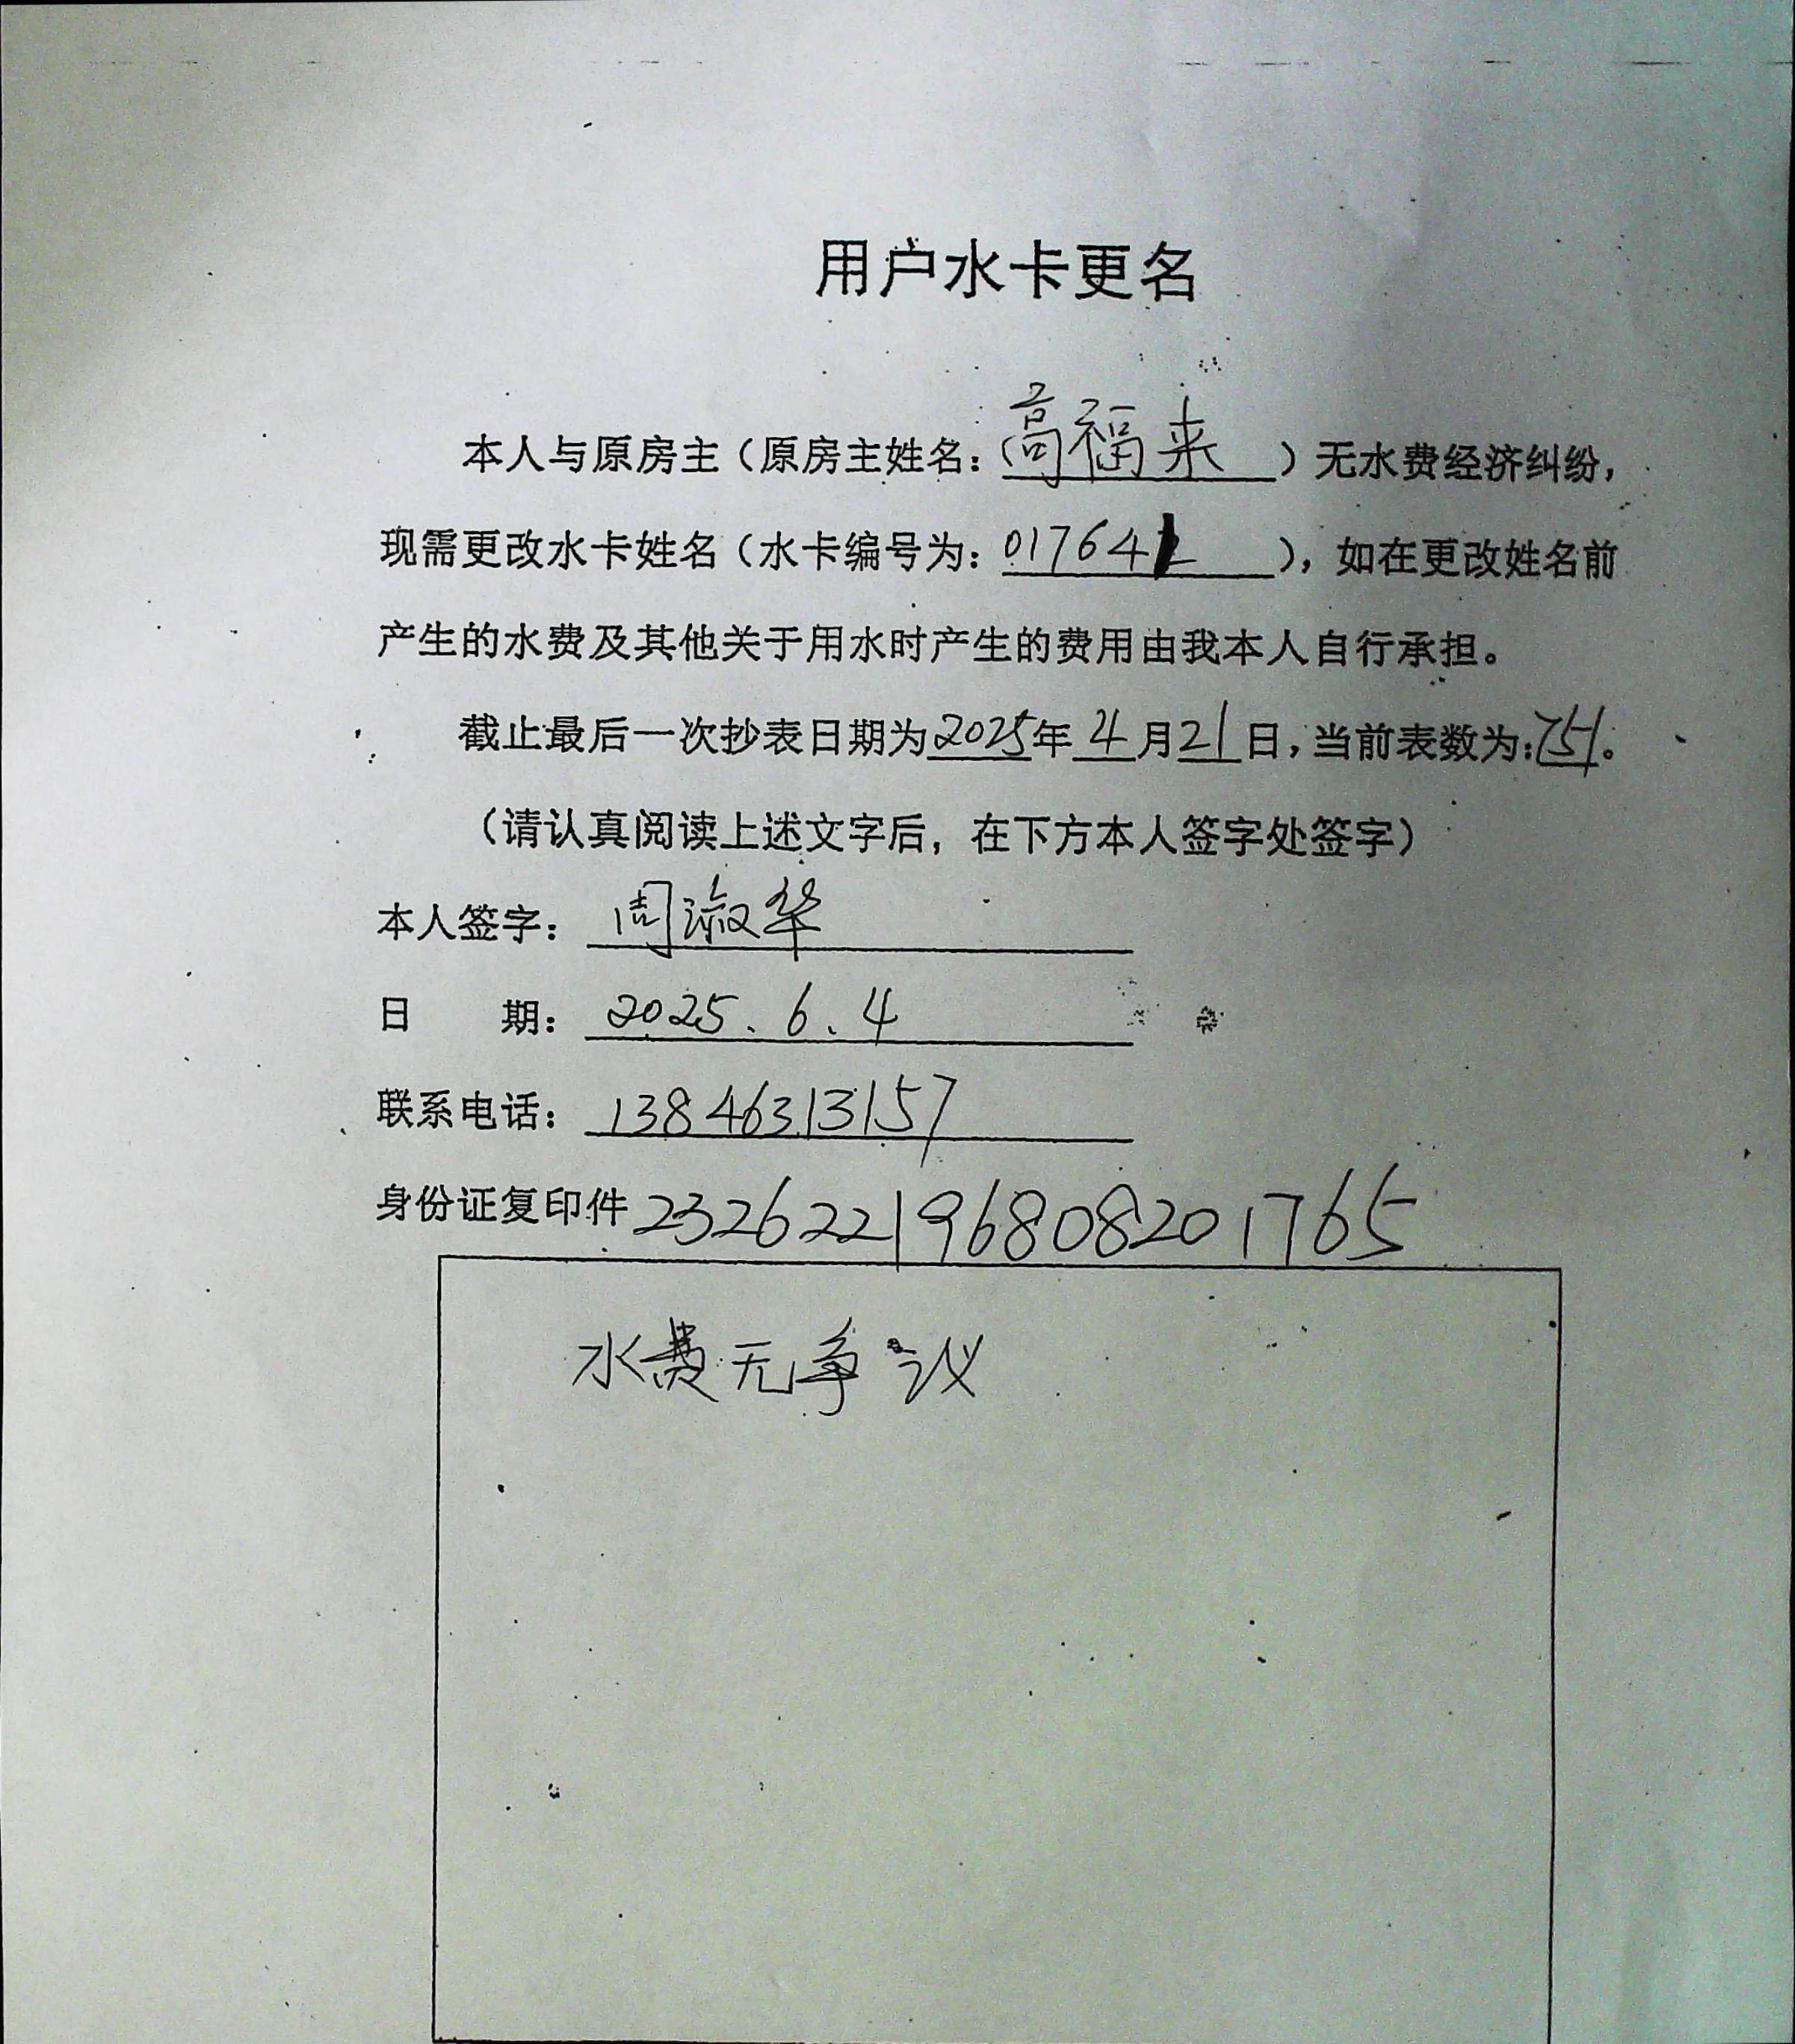 用户水卡更名
本人与原房主（原房主姓名：高福来）无水费经济纠纷，
现需更改水卡姓名（水卡编号为：01764），如在更改姓名前
产生的水费及其他关于用水时产生的费用由我本人自行承担。
截止最后一次抄表日期为2025年4月21日，当前表数为：751。
（请认真阅读上述文字后，在下方本人签字处签字）
本人签字：周淑华
日期：2025.6.4
联系电话：13846313157
身份证复印件 232622196808201765
水费无争议